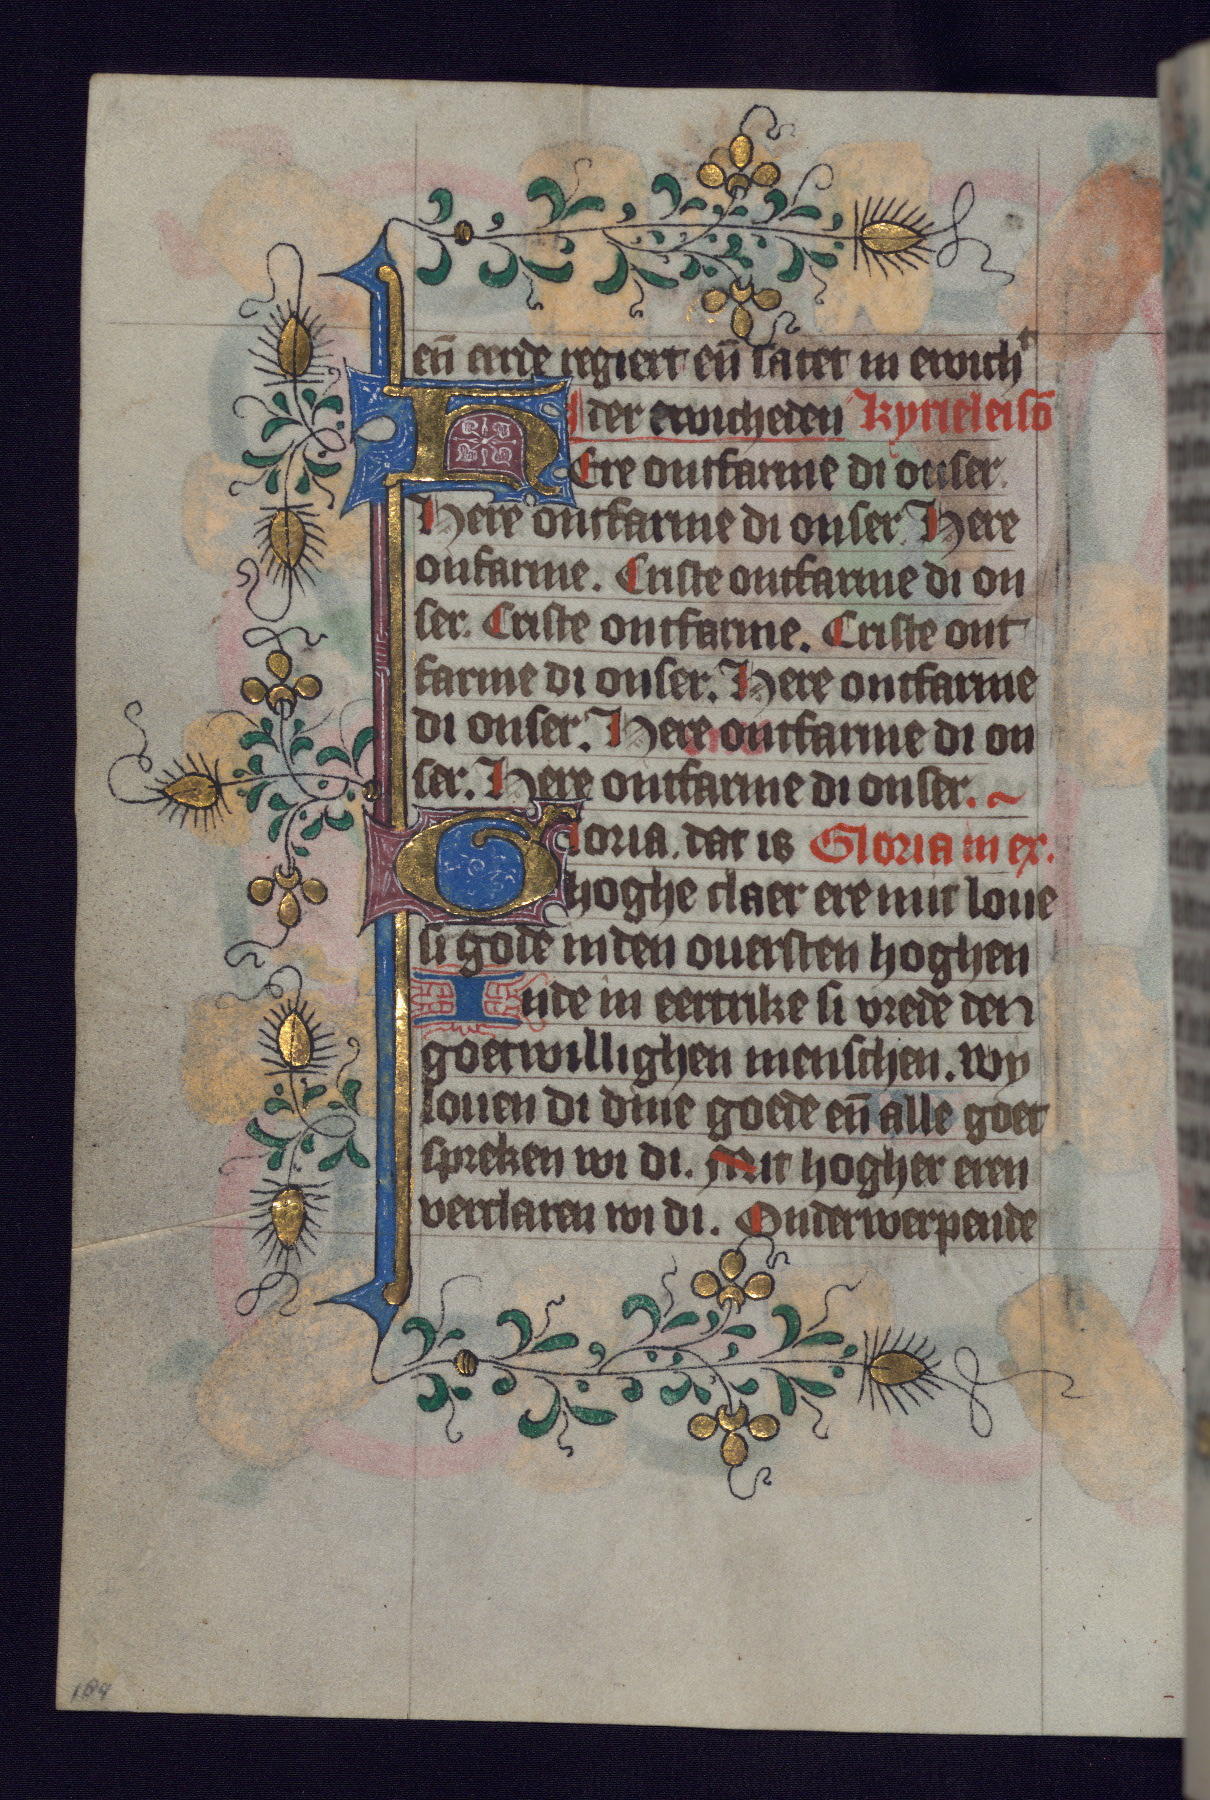 en̄ eerde regiert en̄ sater in ewich
der ewicheden Kyrieleisō
HEre ontfarme di onser.
Here ontfarme di onser. Here
onfarme. Criste ontfarme di on
ser. Criste ontfarme. Criste ont
farme di onser. Here ontfarme
di onser. Here ontfarme di on
ser. Here ontfarme di onser. ~
Gloria. dat is Gloria in ex.
hoghe claer ere mit loue
si gode in den ouersten hoghen
Inde in eertrike si vrede den
goetwillighen menschen. Wy
louen di dine goede en̄ alle goet
spreken wi di. Mit hogher eren
verclaren wi di. Onderwerpende
184